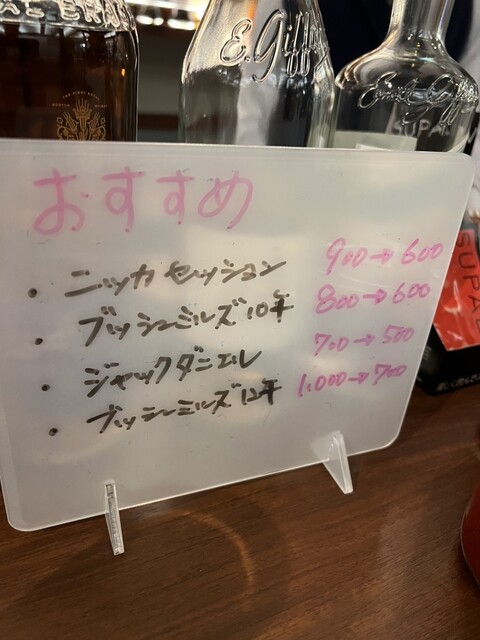 E. Giff
SUPAL
おすすめ
・ニッカ セッション 900→600
・ブッシュミルズ10年 800→600
・ジャックダニエル 700→500
・ブッシュミルズ12年 1,000→700
SUPAL